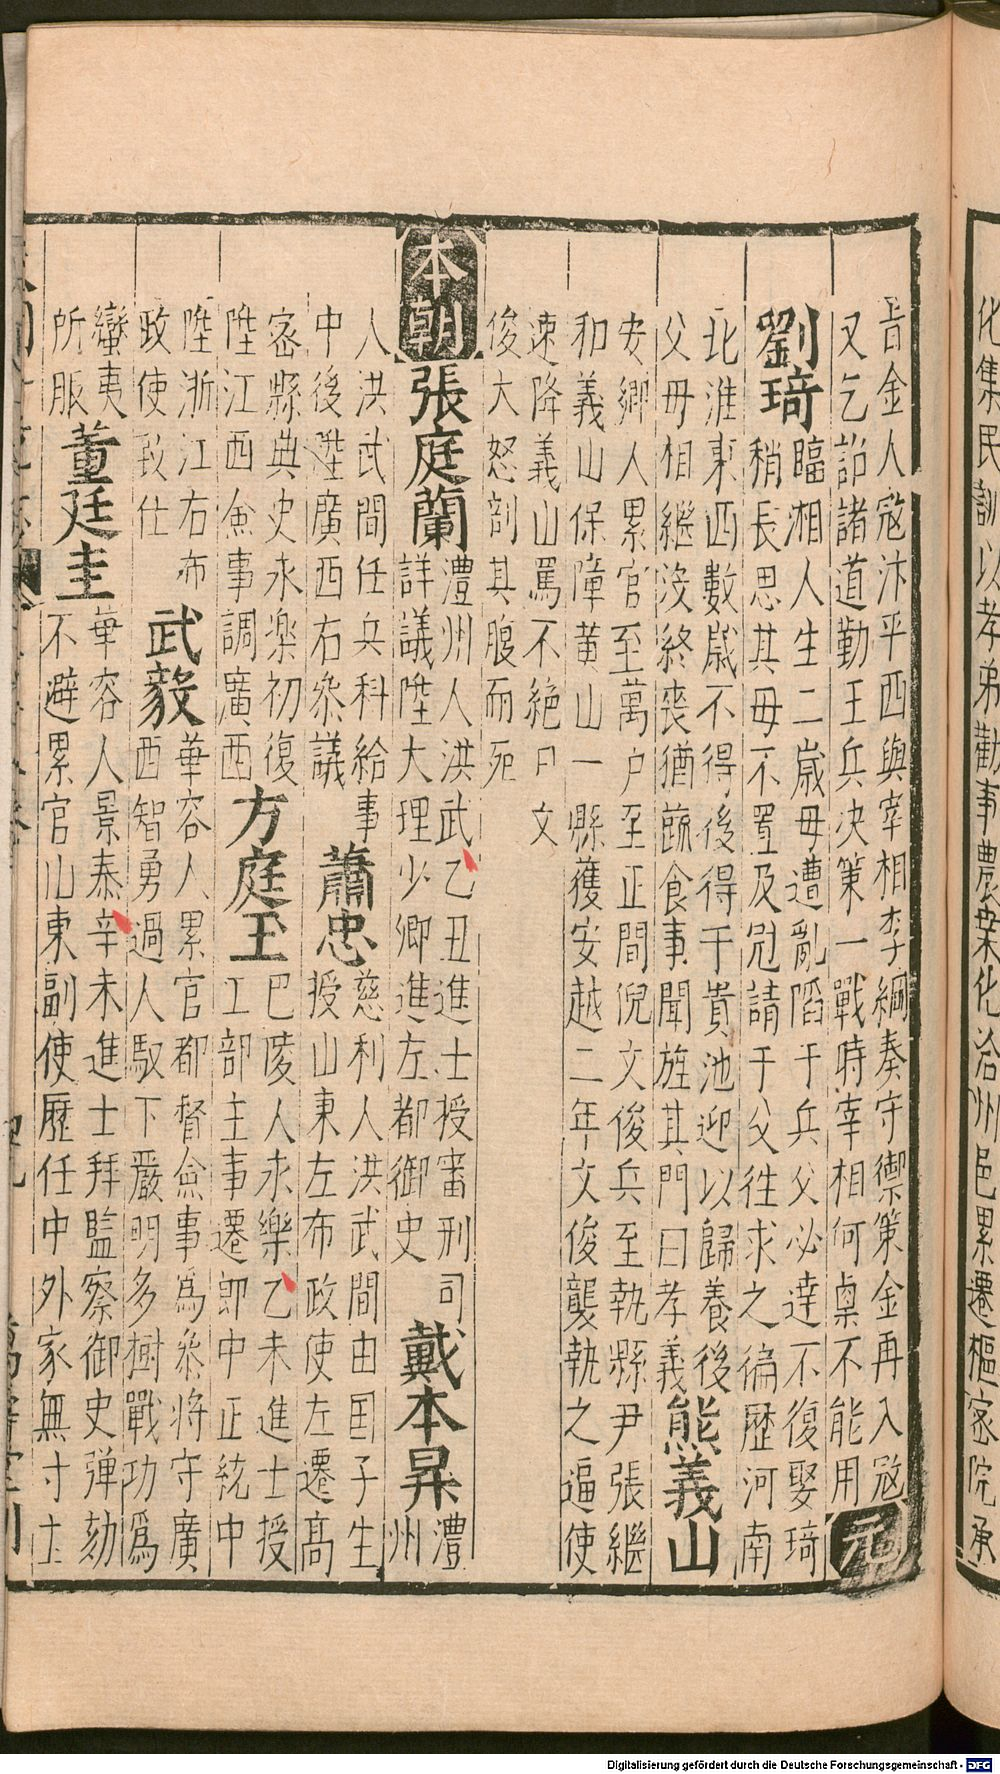 化集民訓以孝弟勸事農業化洽州邑累遷樞密院承
旨金人寇汴平西與宰相李綱奏守禦策金再入寇
又乞詔諸道勤王兵决策一戰時宰相何㮚不能用 元
劉琦
臨湘人生二歲母遭亂䧟于兵父必達不復娶琦
稍長思其母不置及冠請于父徃求之徧歷河南
北淮東西數歲不得後得于貴池迎以歸養後
父母相繼沒終喪猶蔬食事聞旌其門曰孝義
熊義山
安鄉人累官至萬户至正間倪文俊兵至執縣尹張繼
和義山保障黄山一縣獲安越二年文俊襲執之逼使
速降義山罵不絶口文
俊大怒剖其腹而死
本朝 張庭蘭
澧州人洪武乙丑進士授審刑司
詳議陞大理少卿進左都御史
戴本杲
澧
州
人洪武間任兵科給事
中後陞廣西右叅議
蕭忠
慈利人洪武間由国子生
授山東左布政使左遷高
密縣典史永樂初復
陞江西僉事調廣西
方庭玉
巴陵人永樂乙未進士授
工部主事遷郎中正統中
陞浙江右布
政使致仕
武毅
華容人累官都督僉事爲叅將守廣
西智勇過人馭下嚴明多樹戰功爲
蠻夷
所服
董廷圭
華容人景泰辛未進士拜監察御史弹劾
不避累官山東副使歷任中外家無寸土
Digitalisierung gefördert durch die Deutsche Forschungsgemeinschaft - DFG